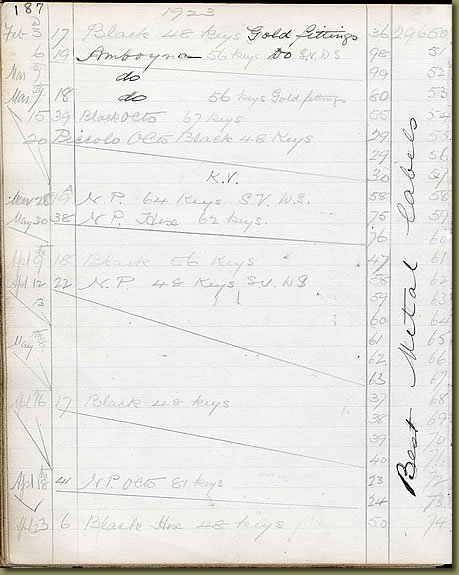 187
1923
Feb 3 17 Black 48 Keys Gold fittings 36 29650
6 19 Amboyna 56 Keys Do S.V. W.S. 98 51
Mar 7 do 99 52
Mar 9 18 do 56 Keys Gold fittings 60 53
15 39 Black Octo 67 Keys 55 54
20 Piccolo Octo Black 48 Keys 29 55
29 56
K.V. 30 57
19 N.P. 64 Keys S.V. W.S. 58 58
May 30 38 N.P. Hex 62 Keys. 75 59
76 60
Apl 9 18 Black 56 Keys 47 61
Apl 12 22 N.P. 48 Keys S.V. W.S 58 62
3 59 63
60 64
May 61 65
62 66
63 67
Apl 16 17 Black 48 Keys 37 68
38 69
39 70
40 71
Apl 18 41 N.P. Octo 81 Keys 23 72
24 73
Apl 23 6 Black Hex 48 Keys 50 74
Best Metal Labels